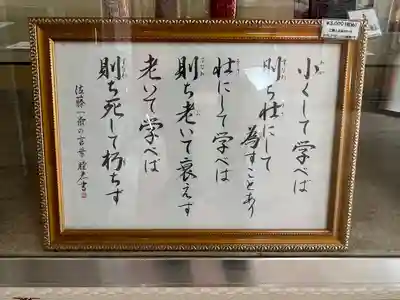 小くして学べば
則ち壮にして
為すことあり
壮にして学べば
則ち老いて衰えず
老いて学べば
則ち死して朽ちず
佐藤一斎の言葉